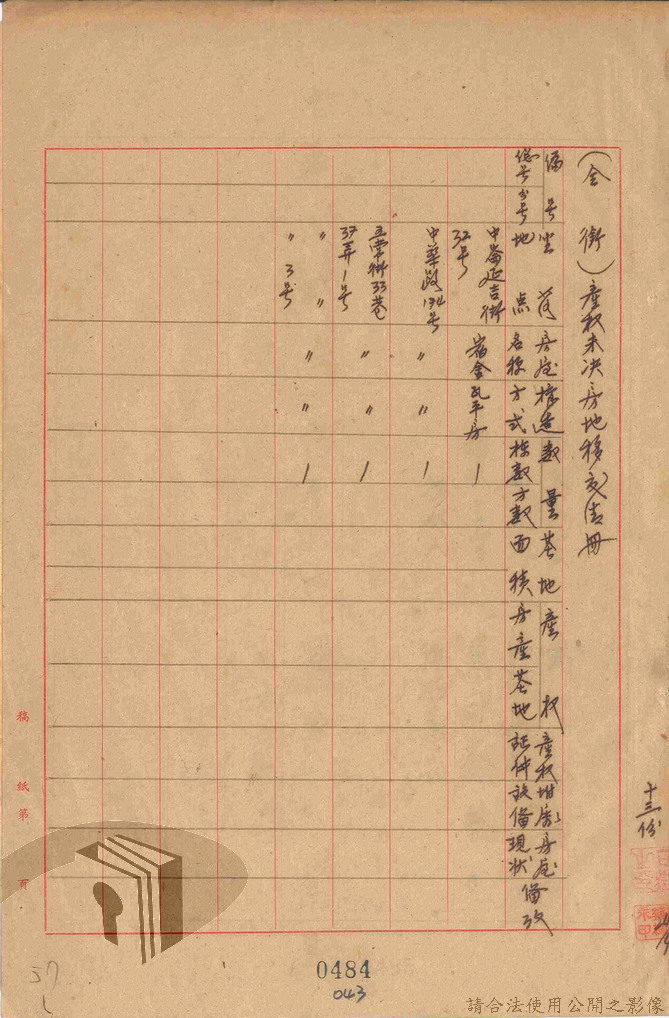 (全銜)產权未决房地移交清冊
編号
總号
分号
坐落
地點
房屋
名称
構造
方式
數量
棟數
方數
基地
面積
產权
房產
基地
產权
証件
附屬
設備
房屋
現狀
備攷
中崙延吉街
32号
宿舍
瓦平房
1
中華路174号
〃
〃
1
五常街33巷
37弄1号
〃
〃
1
〃 〃
〃 3号
〃
〃
1
十三份
稿
紙
第
頁
57
0484
043
請合法使用公開之影像